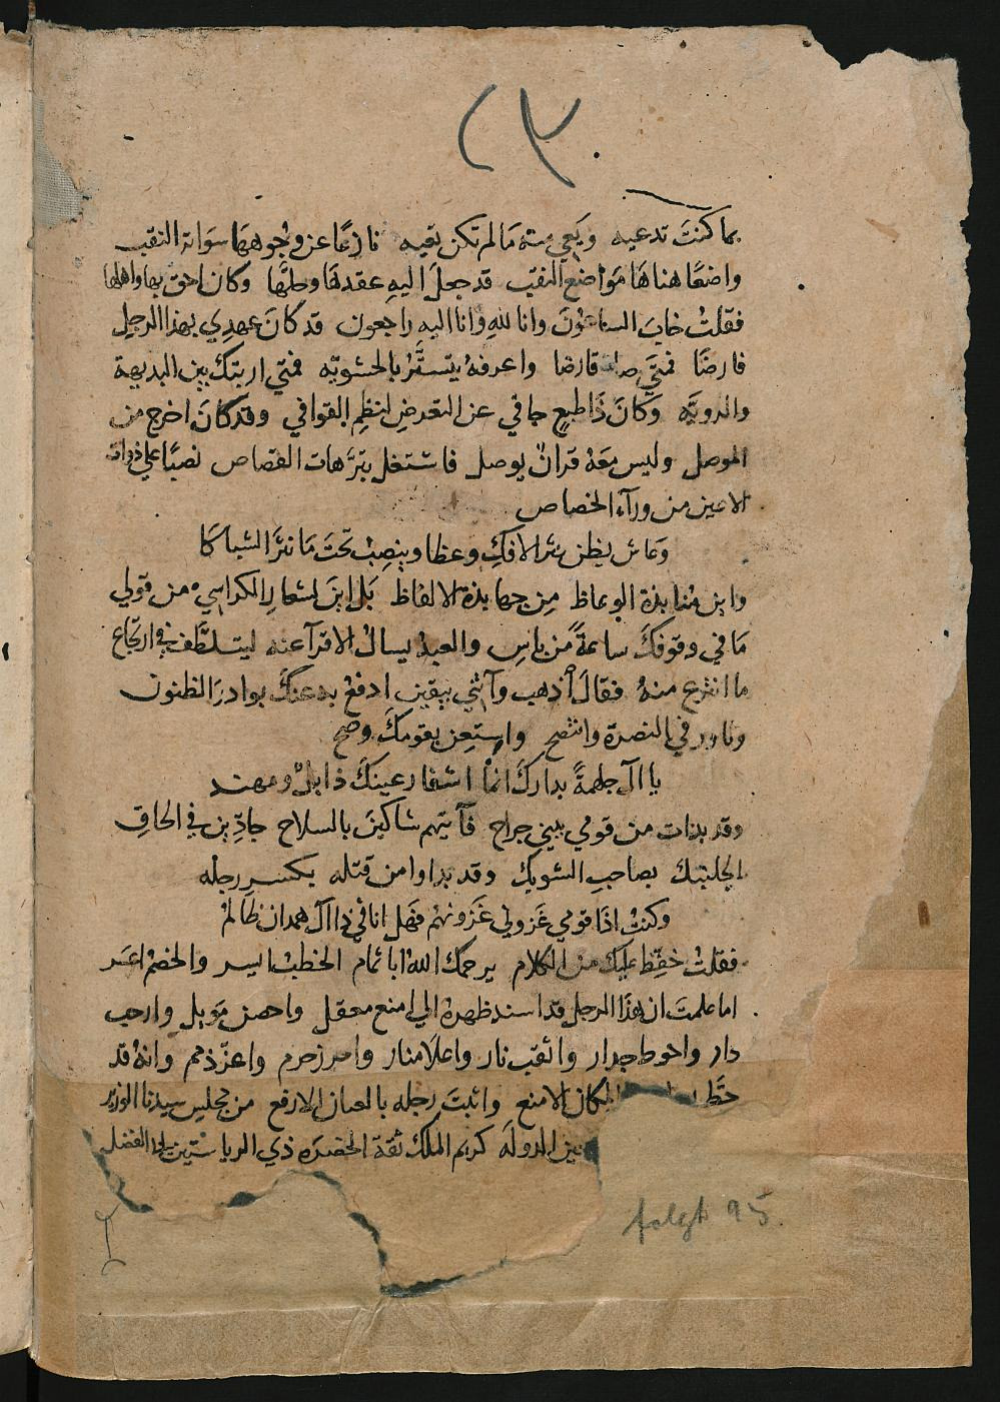 ٢٣٠
بما كنتَ تدعيه ويَعي منه مَا لم تكن تعيه نازعًا عن وجُوههَا سوَاتر النقب
واضعًا هناهَا مَوَاضع النقب قد جعلَ اليهِ عقدهَا وحلّهَا وكان احق بها واهلها
فقلتُ خابَ الساعوُنَ وانا للهِ وانا اليه راجعون قد كانَ عهدِي بهذا الرجل
فارضًا فمتَي صار قارضا واعرفهُ يتستَّرُ بالحشويّه فمتَي ارتبكَ بين البديهة
والرويَّه وكَانَ ذَا طبعٍ جافي عن التعرضِ لنظمِ القوافي وقد كانَ اخرج من
الموصل وليس معَهُ قرانٌ يوصل فاشتغل بترَّهات القصاص نصبًا علي ذوات
الاعين من ورآء الخصاص
وَعَاش يظن نثر الافكِ وعظا وينصِبُ تحتَ مَا نثرَ الشباكَا
واين منابذة الوعاظ مِن جهابذة الالفاظ بَل اينَ اشعار الكراسي من قولي
مَا في وقوفكَ ساعةً من باسِ والعبدُ يسالُ الاقرآ عنه ليتلطَّف في ارتجاع
ما انتزع منهُ فقالَ أذهب وآتني بيقين ادفعْ به عنكَ بوادرَ الظنون
وبادر في النصرة وانتصح واستعِن بقومكَ وصح
يا اآل جلهمةً بداركَ انمَا اشفار عينكَ ذابلٌ ومهند
وقد بدات من قومي ببني جراح فآتيتهم شاكينَ بالسلاح جادّين في الحاقِ
الجلنبك بصاحبِ الشوبك وقد بداوا من قتله بكسرِ رجله
وكنتُ اذَا قومي غَزوني غَزَوتهُم فهَل انا في ذا اآل همدان ظالمُ
فقلتُ خفِّظ عليك من الكلام يرحمكَ اللهُ ابا تمام الخطبُ ايسر والخصمُ اعسَر
اما علمتَ ان هذَا الرجل قد اسند ظهرهُ الي امنع معقل واحصن مَويل وارحب
دار واحوط جدار واثقب نار واعلَا منار واحرز حرم واعزّ ذمم وانهُ قد
حطَّ المكان الامنع واثبتَ رجله بالعنان الارفع من مجلس سيدنا الوزير
الدولَه كريم الملكِ ثقة الحضرَه ذي الرياستَين الفضل
folgt 95.